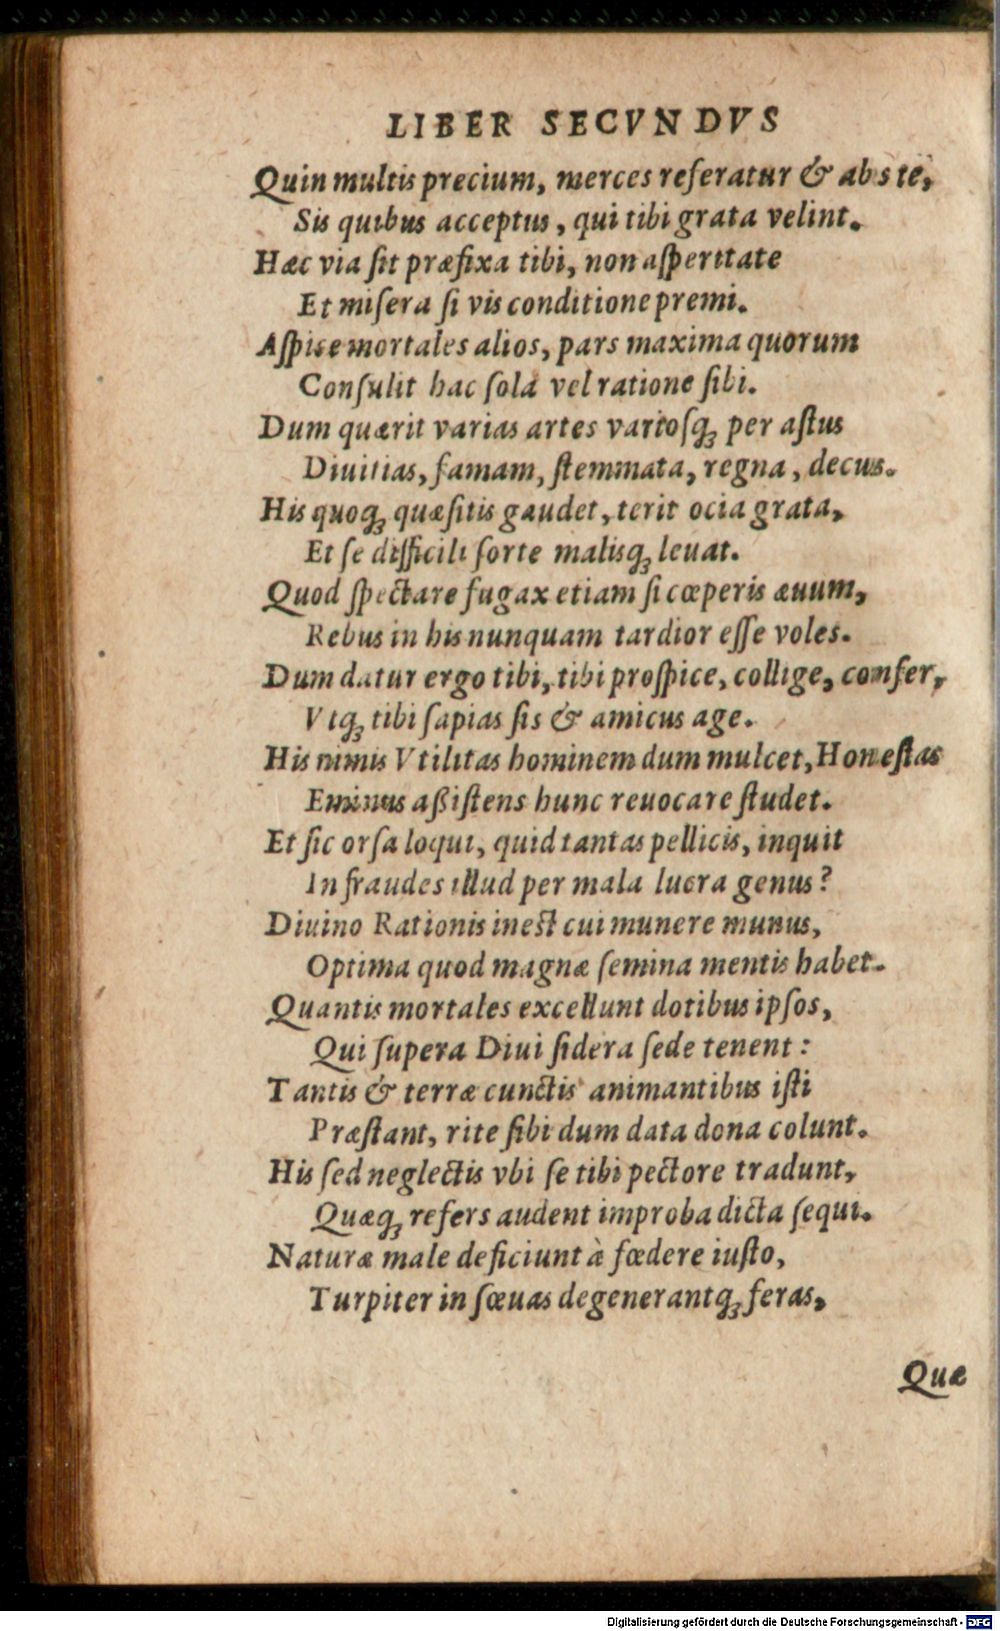 LIBER SECVNDVS
Quin multis precium, merces referatur & abs te,
Sis quibus acceptus, qui tibi grata velint.
Hæc via ſit præfixa tibi, non aſperitate
Et miſera ſi vis conditione premi.
Aſpice mortales alios, pars maxima quorum
Conſulit hac ſola vel ratione ſibi.
Dum quærit varias artes varioſq́ꝫ per aſtus
Diuitias, famam, ſtemmata, regna, decus.
His quoqꝫ quæſitis gaudet, terit ocia grata,
Et ſe difficili ſorte malisqꝫ leuat.
Quod ſpectare fugax etiam ſi cœperis æuum,
Rebus in his nunquam tardior eſſe voles.
Dum datur ergo tibi, tibi proſpice, collige, confer,
Vtqꝫ tibi ſapias ſis & amicus age.
His nimis Vtilitas hominem dum mulcet, Honeſtas
Eminus aßiſtens hunc reuocare ſtudet.
Et ſic orſa loqui, quid tantas pellicis, inquit
In fraudes illud per mala lucra genus?
Diuino Rationis ineſt cui munere munus,
Optima quod magnæ ſemina mentis habet.
Quantis mortales excellunt dotibus ipſos,
Qui ſupera Diui ſidera ſede tenent:
Tantis & terræ cunctis animantibus iſti
Præſtant, rite ſibi dum data dona colunt.
His ſed neglectis vbi ſe tibi pectore tradunt,
Quæqꝫ refers audent improba dicta ſequi.
Naturæ male deficiunt à fœdere iuſto,
Turpiter in ſœuas degenerantqꝫ feras,
Quæ
Digitalisierung gefördert durch die Deutsche Forschungsgemeinschaft - DFG